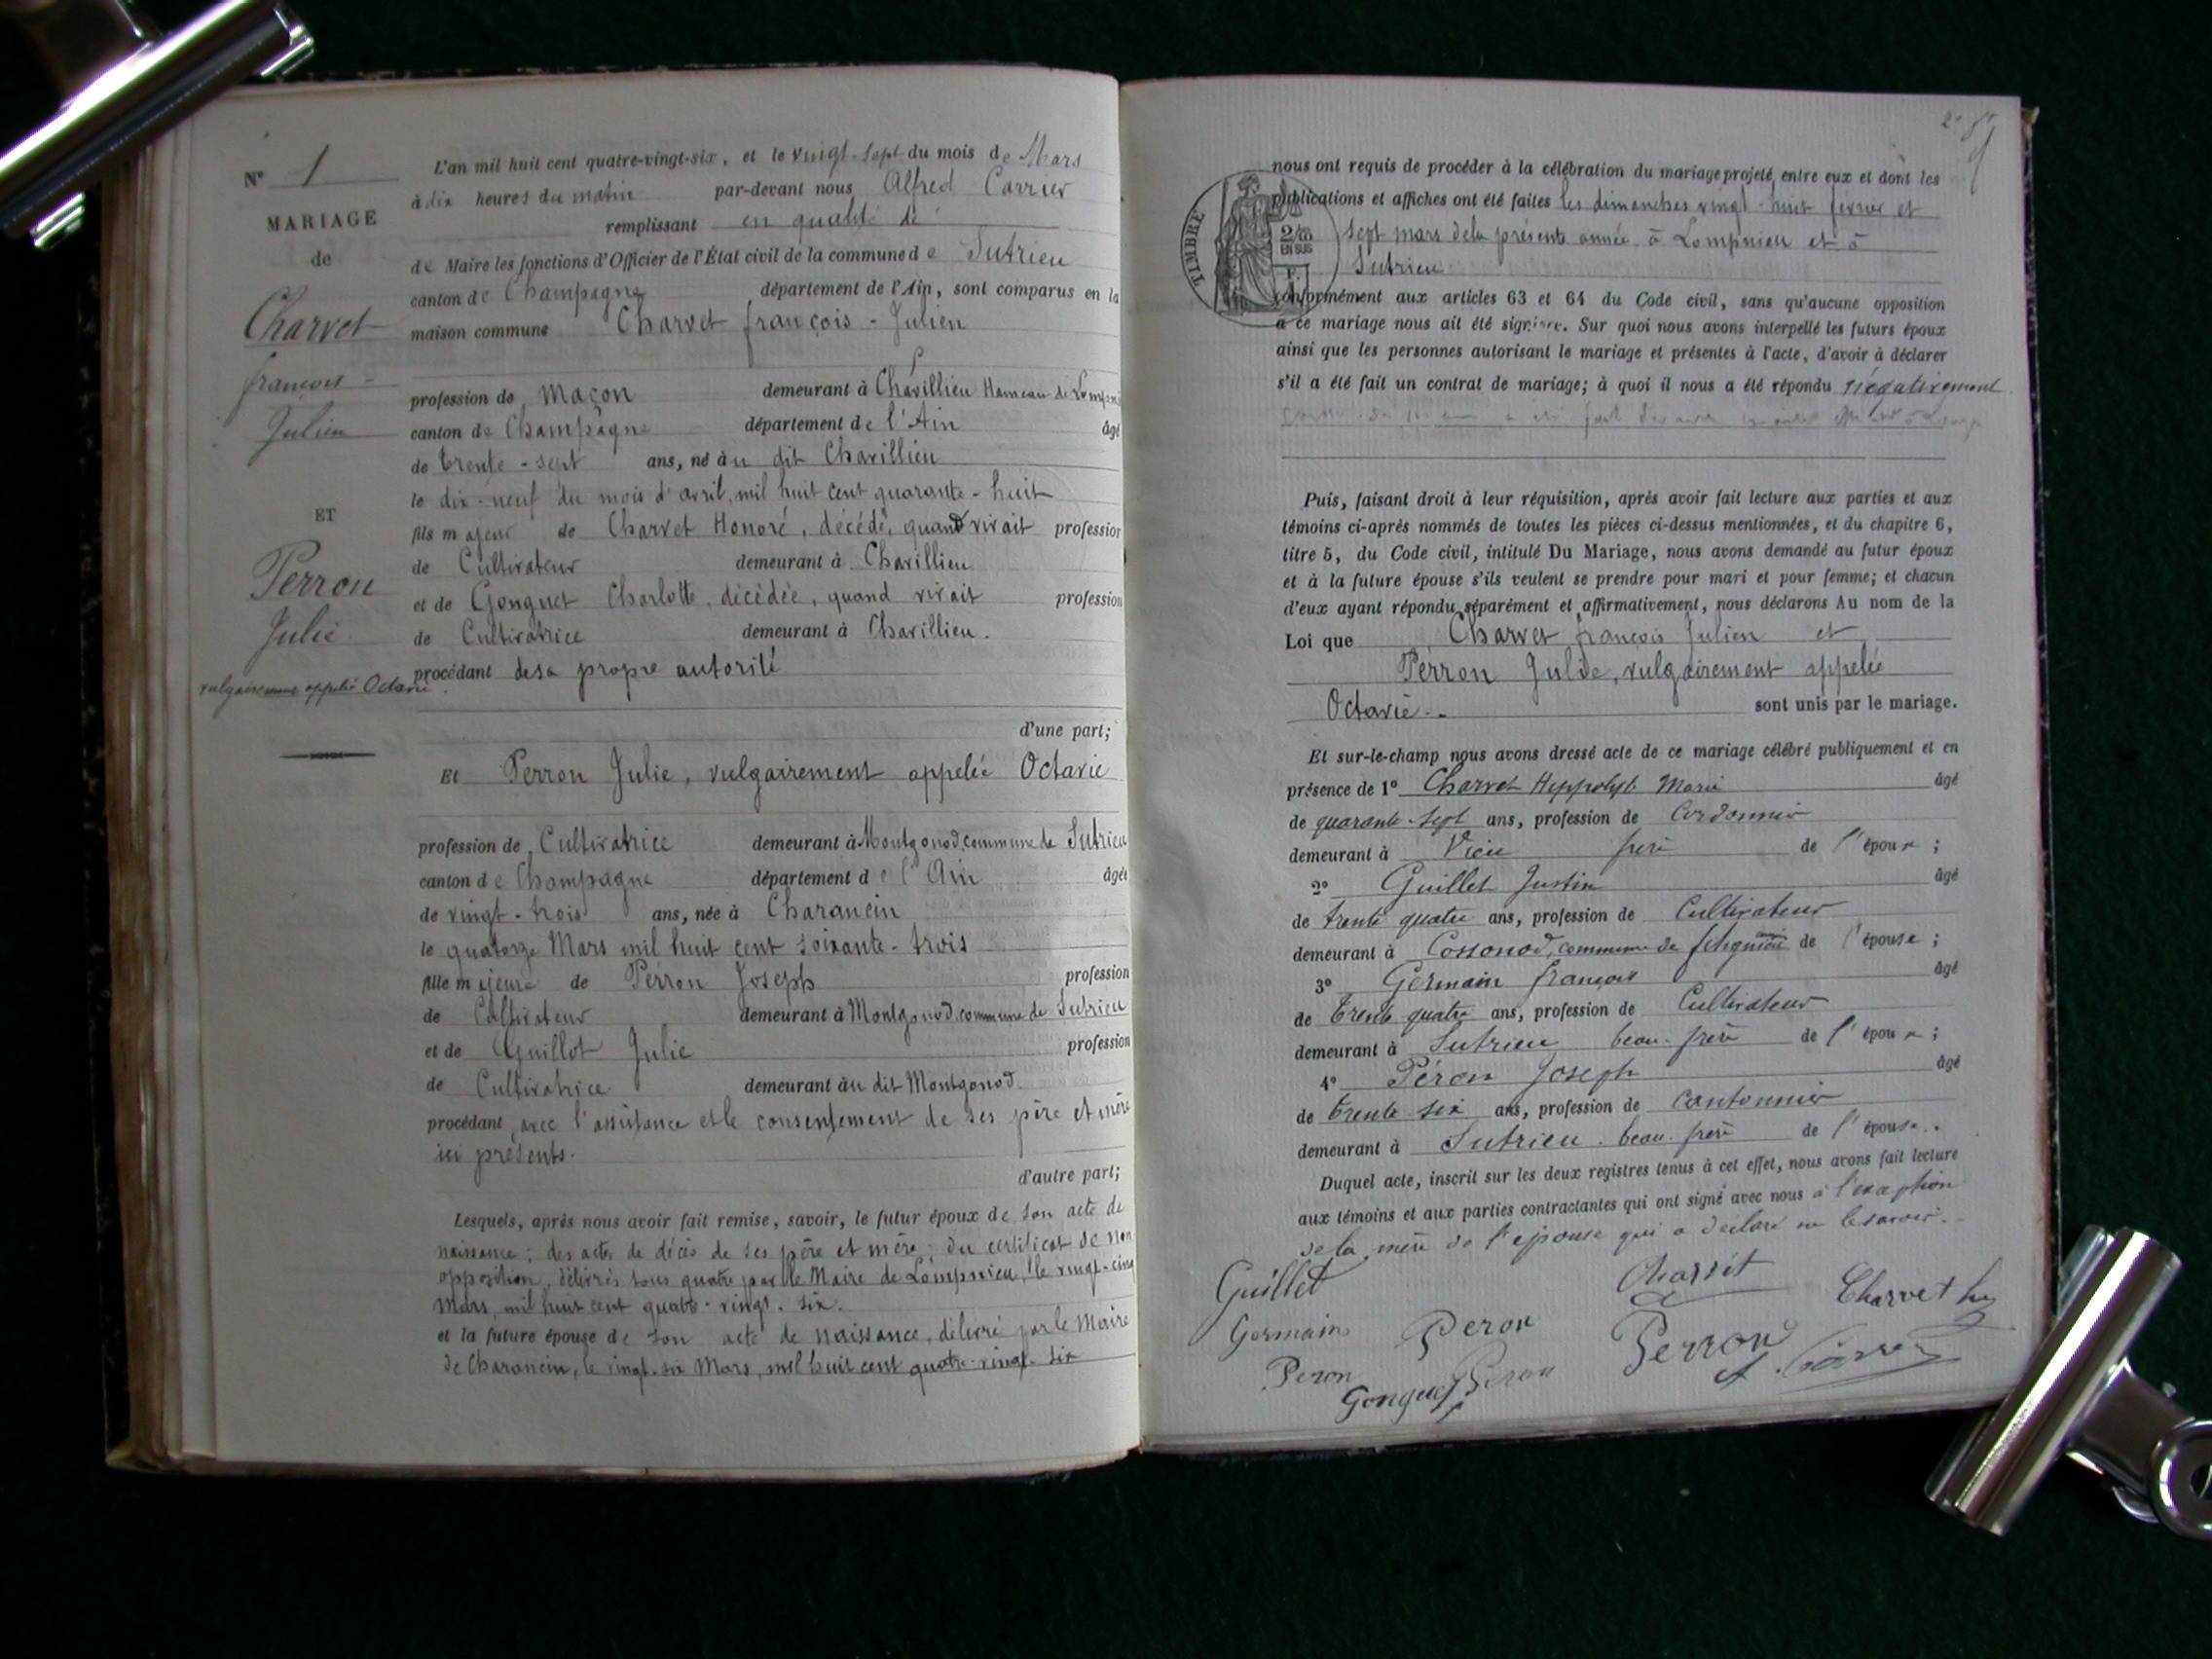 N° 1
MARIAGE
de
Charvet
françois -
Julien
ET
Perron
Julie
vulgairement appelée Octavie.
L'an mil huit cent quatre-vingt-six, et le vingt-sept du mois de Mars
à dix heures du matin par-devant nous Alfred Carrier
remplissant en qualité de
de Maire les fonctions d'Officier de l'État civil de la commune de Sutrieu
canton de Champagne département de l'Ain, sont comparus en la
maison commune Charvet françois - Julien
profession de Maçon demeurant à Chavillieu Hameau de
canton de Champagne département de l'Ain âgé
de trente-sept ans, né au dit Chavillieu
le dix-neuf du mois d'avril, mil huit cent quarante-huit
fils majeur de Charvet Honoré, décédé, quand vivait profession
de Cultivateur demeurant à Chavillieu
et de Gonguet Charlotte, décédée, quand vivait profession
de Cultivatrice demeurant à Chavillieu.
procédant de sa propre autorité
d'une part;
Et Perron Julie, vulgairement appelée Octavie
profession de Cultivatrice demeurant à Montgonod, commune de Sutrieu
canton de Champagne département de l'Ain âgée
de vingt-trois ans, née à Charancin
le quatorze Mars mil huit cent soixante-trois
fille majeure de Perron Joseph profession
de Cultivateur demeurant à Montgonod, commune de Sutrieu
et de Guillot Julie profession
de Cultivatrice demeurant au dit Montgonod.
procédant avec l'assistance et le consentement de ses père et mère
ici présents.
d'autre part;
Lesquels, après nous avoir fait remise, savoir, le futur époux de son acte de
naissance; des actes de décès de ses père et mère; du certificat de non
opposition, délivrés tous quatre par le Maire de Lompnieu, le vingt-cinq
Mars, mil huit cent quatre-vingt-six.
et la future épouse de son acte de naissance, délivré par le Maire
de Charancin, le vingt-six Mars, mil huit cent quatre-vingt-six
TIMBRE
2/10
EN SUS
nous ont requis de procéder à la célébration du mariage projeté entre eux et dont les
publications et affiches ont été faites les dimanches vingt-huit février et
sept mars de la présente année à Lompnieu et à
Sutrieu
conformément aux articles 63 et 64 du Code civil, sans qu'aucune opposition
à ce mariage nous ait été signifiée. Sur quoi nous avons interpellé les futurs époux
ainsi que les personnes autorisant le mariage et présentes à l'acte, d'avoir à déclarer
s'il a été fait un contrat de mariage; à quoi il nous a été répondu négativement
Puis, faisant droit à leur réquisition, après avoir fait lecture aux parties et aux
témoins ci-après nommés de toutes les pièces ci-dessus mentionnées, et du chapitre 6,
titre 5, du Code civil, intitulé Du Mariage, nous avons demandé au futur époux
et à la future épouse s'ils veulent se prendre pour mari et pour femme; et chacun
d'eux ayant répondu séparément et affirmativement, nous déclarons Au nom de la
Loi que Charvet françois Julien et
Perron Julie, vulgairement appelée
Octavie. sont unis par le mariage.
Et sur-le-champ nous avons dressé acte de ce mariage célébré publiquement et en
présence de 1° Charvet Hyppolyte Marie âgé
de quarante-sept ans, profession de Cordonnier
demeurant à Vieu frère de l'époux;
2° Guillet Justin âgé
de trente quatre ans, profession de Cultivateur
demeurant à Cossonod, commune de de l'épouse;
3° Germain françois âgé
de trente quatre ans, profession de Cultivateur
demeurant à Sutrieu beau-frère de l'époux;
4° Péron Joseph âgé
de trente six ans, profession de Cantonnier
demeurant à Sutrieu beau-frère de l'épouse.
Duquel acte, inscrit sur les deux registres tenus à cet effet, nous avons fait lecture
aux témoins et aux parties contractantes qui ont signé avec nous à l'exception
de la mère de l'épouse qui a déclaré ne le savoir.
Guillet Charvet Charvet hy
Germain Peron Perron
Peron Peron
Gonguet